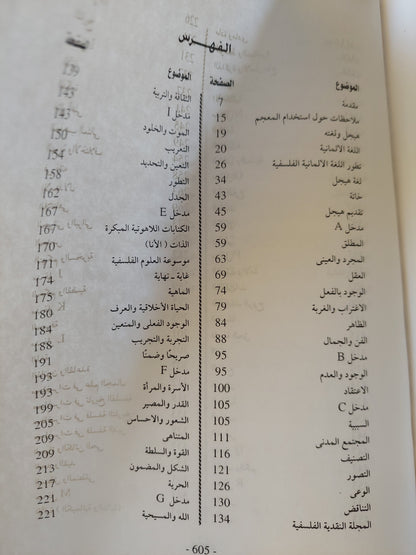 الفهرس
الموضوع الصفحة
مقدمة 7
ملاحظات حول استخدام المعجم 15
هيجل ولغته 19
اللغة الالمانية 20
تطور اللغة الالمانية الفلسفية 26
لغة هيجل 34
خاتمة 43
تقديم هيجل 45
مدخل A 59
المطلق 59
المجرد والعينى 63
العقل 69
الوجود بالفعل 74
الاغتراب والغربة 79
الظاهر 84
الفن والجمال 88
مدخل B 95
الوجود والعدم 95
الاعتقاد 100
مدخل C 105
السببية 105
المجتمع المدنى 111
التصنيف 116
التصور 121
الوعى 126
التناقض 130
المجلة النقدية الفلسفية 134
الموضوع
الثقافة والتربية 139
مدخل I 143
الموت والخلود 143
التعريب 150
التعين والتحديد 154
التطور 158
الجدل 162
مدخل E 167
الكتابات اللاهوتية المبكرة 167
الذات (الأنا) 170
موسوعة العلوم الفلسفية 171
غاية - نهاية 174
الماهية 175
الحياة الأخلاقية والعرف 180
الوجود الفعلى والمتعين 184
التجربة والتجريب 188
صريحًا وضمنًا 191
مدخل F 193
الأسرة والمرأة 193
القدر والمصير 199
الشعور والاحساس 205
المتناهى 209
القوة والسلطة
الشكل والمضمون 213
الحرية 217
مدخل G 221
الله والمسيحية 221
- 605 -